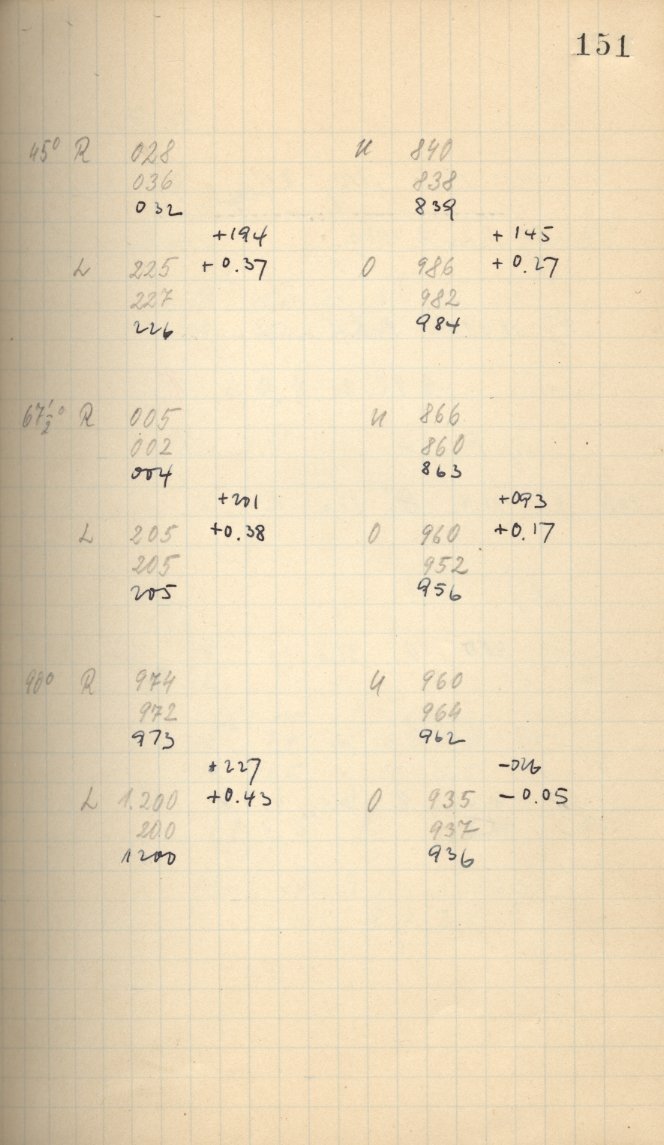 151
45° R 028 U 840
036 838
032 839
+194 +145
L 225 +0.37 O 986 +0.27
227 982
226 984
67½° R 005 U 866
002 860
004 863
+201 +093
L 205 +0.38 O 960 +0.17
205 952
205 956
90° R 974 U 960
972 964
973 962
+227 -026
L 1.200 +0.43 O 935 -0.05
200 937
1200 936